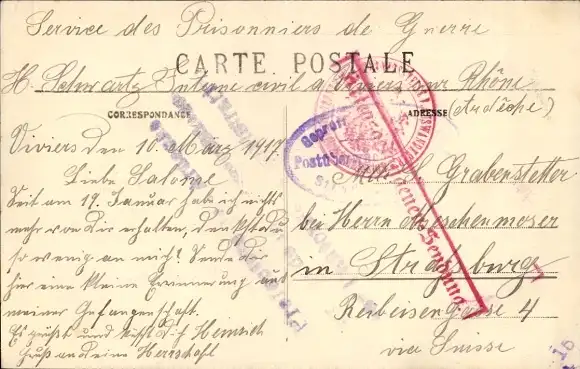 Service des Prisonniers de Guerre
CARTE POSTALE
H. Schwartz Interné civil à Viviers sur Rhône
(Ardèche)
CORRESPONDANCE
ADRESSE
Viviers den 10. März 1917.
Liebe Salome
Seit am 19. Januar hab ich nichts
mehr von dir erhalten, denkst du
so wenig an mich? Sende dir
hier eine kleine Erinnerung aus
meiner Gefangenschaft.
Es grüßt und küßt dich Heinrich
Gruß an deine Herrschaft
Grabenstetter
bei Herrn Meschenmoser
in Strassburg
Reibeisengasse 4
via Suisse
Geprüft
Sendung